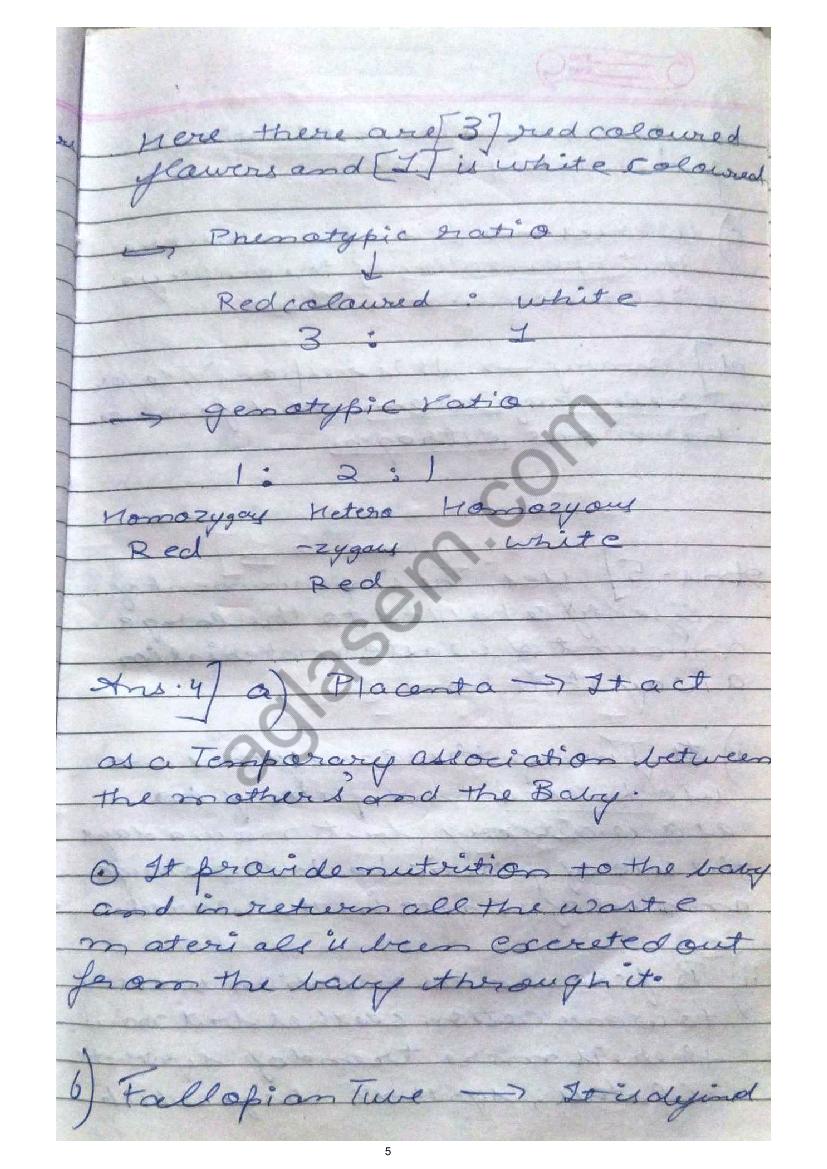 Here there are [3] red coloured
flowers and [1] is white coloured
→ Phenotypic ratio
↓
Red coloured : white
3 : 1
→ genotypic ratio
1 : 2 : 1
Homozygous Hetero Homozyous
Red -zygous white
Red
Ans.4] a) Placenta → It act
as a Temporary association between
the mother's and the Baby.
⊙ It provide nutrition to the baby
and in return all the waste
materials is been excreted out
from the baby through it.
b) Fallopian Tube → It is defind
aglasem.com
5